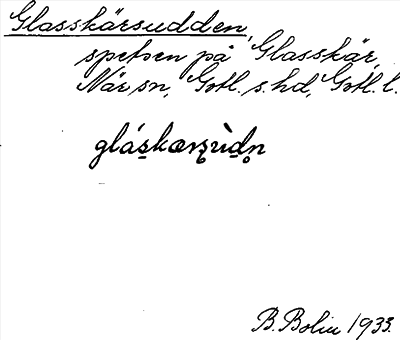 Glasskärsudden,
spetsen på Glasskär,
När sn, Gotl. s. hd, Gotl. l.
glás̠kæṛsùd̠n̥
B. Bolin 1933.